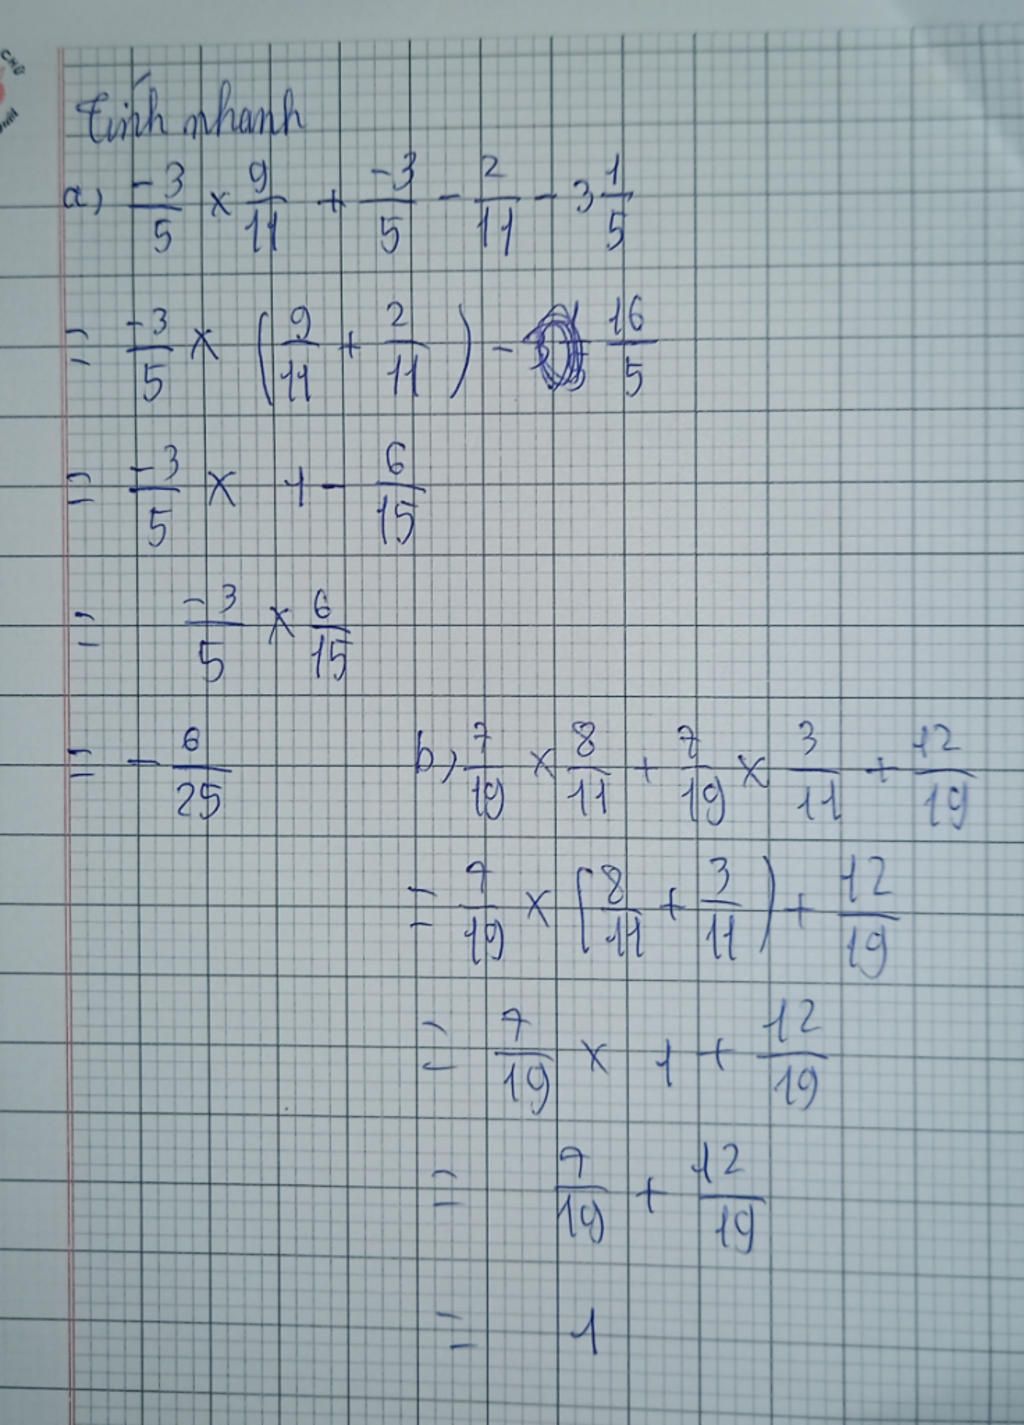 Tính nhanh
a) -3/5 × 9/11 + -3/5 - 2/11 - 3 1/5
= -3/5 × (9/11 + 2/11) - 16/5
= -3/5 × 1 - 6/15
= -3/5 × 6/15
= - 6/25
b) 7/19 × 8/11 + 7/19 × 3/11 + 12/19
= 7/19 × (8/11 + 3/11) + 12/19
= 7/19 × 1 + 12/19
= 7/19 + 12/19
= 1